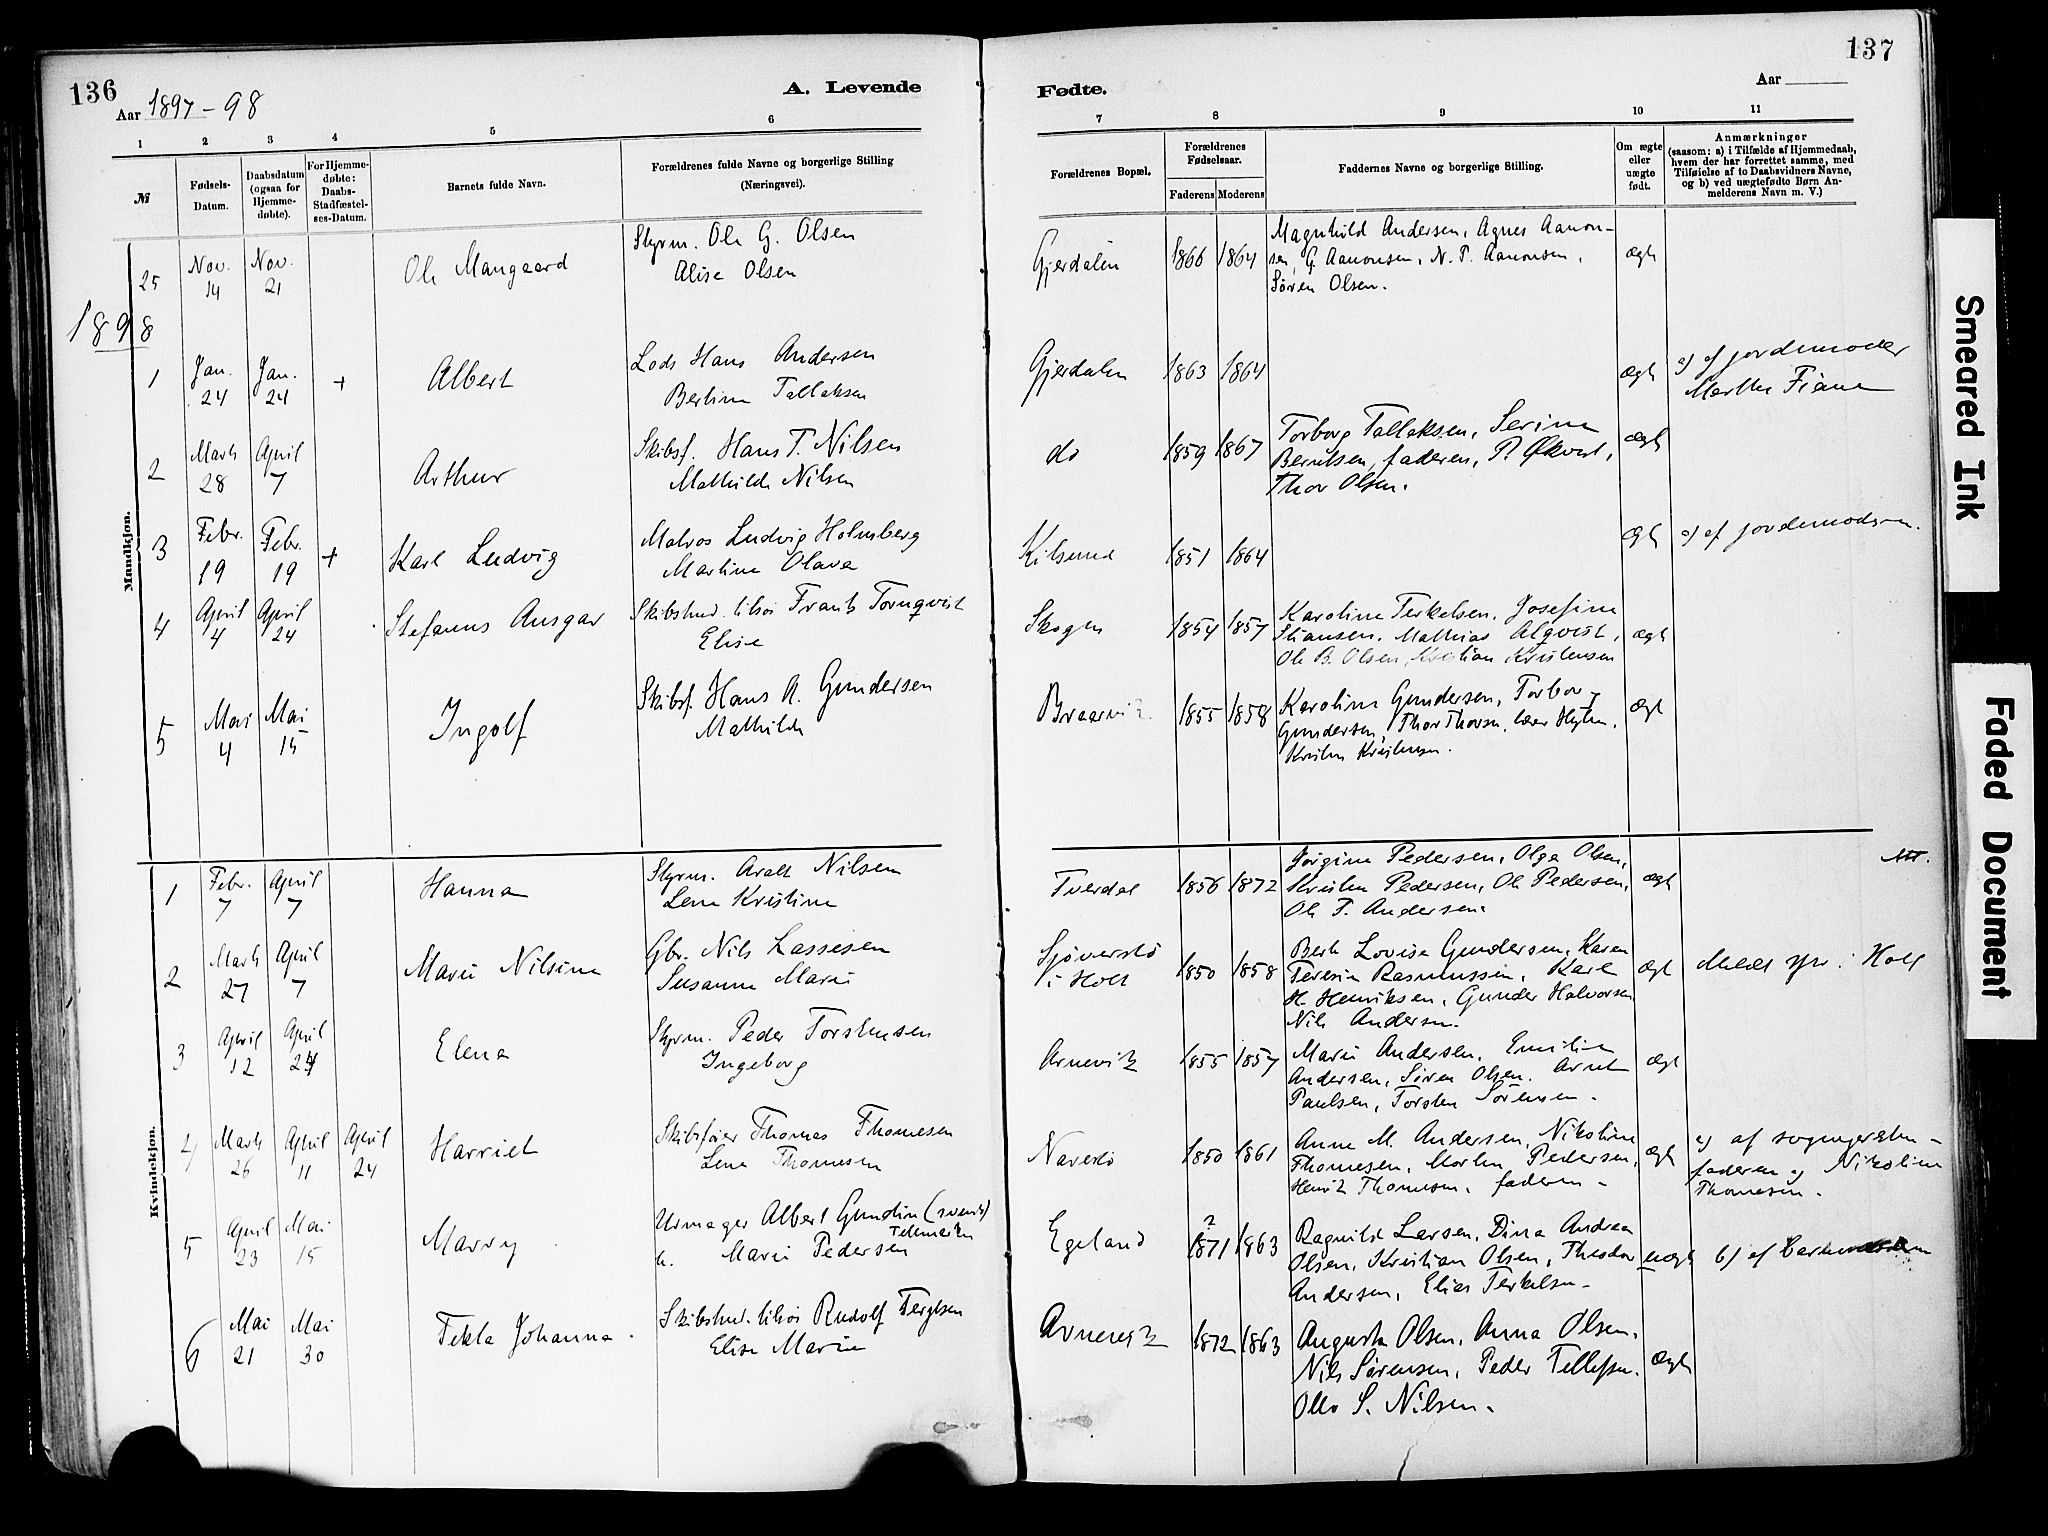 136
Aar 1897-98
A. Levende
1 2 3 4 5 6
№
Fødsels-
Datum.
Daabsdatum
(ogsaa for
Hjemme-
døbte).
For Hjemme-
døbte:
Daabs-
Stadfæstel-
ses-Datum.
Barnets fulde Navn.
Forældrenes fulde Navne og borgerlige Stilling
(Næringsvei).
Mandkjøn.
25 Nov. 14 Nov. 21 Ole Mangaard
Styrm. Ole G. Olsen
Alise Olsen
1898
1 Jan. 24 Jan. 24 + Albert
Lods Hans Andersen
Berline Tallaksen
2 Marts 28 April 7 Arthur
Skibsf. Hans T. Nilsen
Mathilde Nilsen
3 Febr. 19 Febr. 19 + Karl Ludvig
Matros Ludvig Holmberg
Martine Olava
4 April 4 April 24 Stefanus Ansgar
Skibstmd. tilsøs Frants Tornqvist
Elise
5 Mai 4 Mai 15 Ingolf
Skibsf. Hans A. Gundersen
Mathilde
Kvindekjøn.
1 Febr. 7 April 7 Hanna
Styrm. Aralt Nilsen
Lena Kristine
2 Marts 27 April 7 Marie Nilsine
Gbr. Nils Lassesen
Susanne Marie
3 April 12 April 24 Elena
Styrm. Peder Torstensen
Ingeborg
4 Marts 26 April 11 April 24 Harriet
Skibsfører Thomas Thomesen
Lena Thomesen
5 April 23 Mai 15 Marry
Urmager Albert Gundin (svensk)
Telemarken
u. Marie Pedersen
6 Mai 21 Mai 30 Tekla Johanna
Skibstmd. tilsøs Rudolf Tergesen
Elise Marie
137
Fødte.
Aar
7 8 9 10 11
Forældrenes Bopæl.
Forældrenes
Fødselsaar.
Faderens Moderens
Faddernes Navne og borgerlige Stilling.
Om ægte
eller
uægte
født.
Anmærkninger
(saasom: a) i Tilfælde af Hjemmedaab,
hvem der har forrettet samme, med
Tilføielse af to Daabsvidners Navne,
og b) ved uægtefødte Børn An-
melderens Navn m. V.)
Gjerdalen 1866 1864
Magnhild Andersen, Agnes Aanon-
sen, G. Aanonsen, N. P. Aanonsen,
Søren Olsen.
ægte
Gjerdalen 1863 1864 ægte
a) af jordemoder
Marthe Fiane
do 1859 1867
Torborg Tallaksen, Serine
Berntsen, faderen, P. Økvist,
Thor Olsen.
ægte
Kilsund 1851 1864 ægte a) af jordemoderen.
Skogen 1854 1857
Karoline Terkelsen, Josefine
Stiansen, Mathias Alqvist,
Ole B. Olsen, Kristian Kristensen
ægte
Braarvik 1855 1858
Karoline Gundersen, Torbor
Gundersen, Thor Thorsen,
Kristen Kristensen.
ægte
Tverdal 1856 1872
Jørgine Pedersen, Olga Olsen,
Kristen Pedersen, Ole Pedersen,
Ole P. Andersen.
ægte
Sjøverstø
i Holt
1850 1858
Berte Lovise Gundersen, Karen
Teresie Rasmussen, Karl
H. Henriksen, Gunder Halvorsen
Nils Andersen.
ægte
Meldt spr. i Holt
Arnevik 1855 1857
Marie Andersen, Emilie
Andersen, Søren Olsen, Arnt
Paulsen, Torsten Sørensen.
ægte
Naverstø 1850 1861
Anne M. Andersen, Nikoline
Thomesen, Morten Pedersen,
Henrik Thomesen, faderen.
ægte
a) af sognepresten
faderen og Nikoline
Thomesen.
Egeland ? 1871 1863
Ragnild Larsen, Dina Andrea
Olsen, Kristian Olsen, Theodor
Andersen, Elias Terkelsen.
uægte
b) af
Arnevik 1872 1863
Augusta Olsen, Anna Olsen,
Nils Sørensen, Peder Tellefsen,
Otto S. Nilsen.
ægte
Smeared Ink
Faded Document